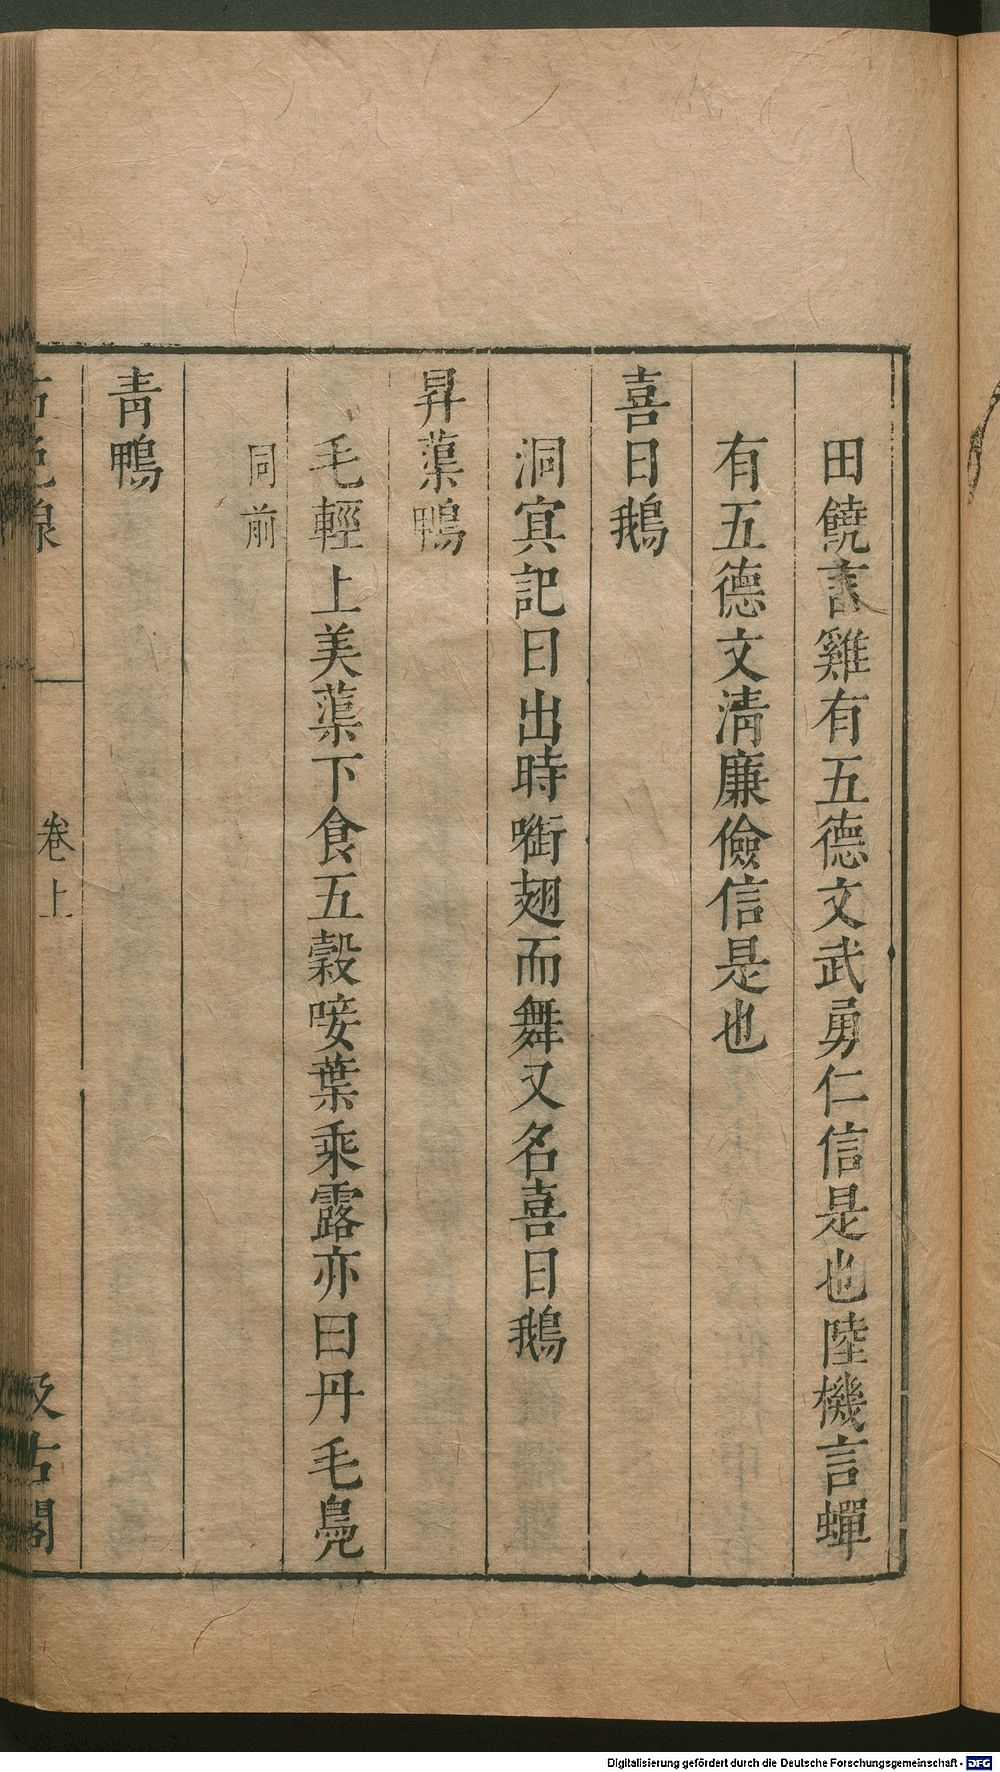 田饒言雞有五德文武勇仁信是也陸機言蟬
有五德文清廉儉信是也
喜日鵝
洞冥記日出時㗸翅而舞又名喜日鵝
昇蕖鴨
毛輕上美蕖下食五穀唼葉乘露亦曰丹毛鳧
同前
青鴨
五色線
卷上
汲古閣
Digitalisierung gefördert durch die Deutsche Forschungsgemeinschaft - DFG